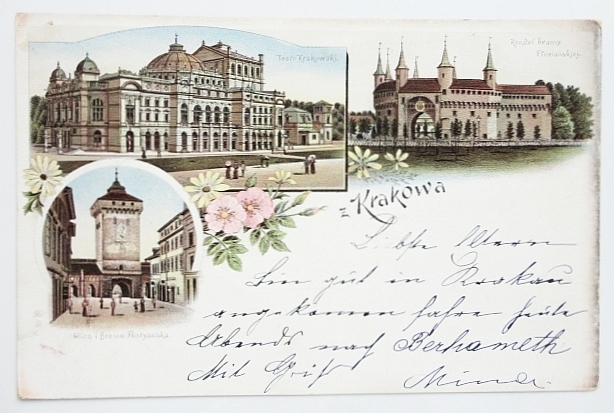 Teatr Krakowski.
Rondel bramy
Floriańskiej.
z Krakowa
Ulica i Brama Floryańska
Liebste Eltern
Bin gut in Krakau
angekommen fahre heute
Abends nach Berhameth
Mit Gruß Minna.